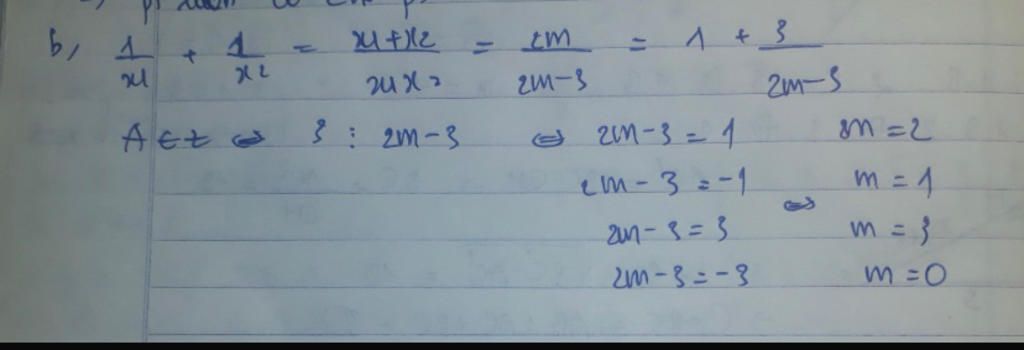 b, 1/x1 + 1/x2 = x1+x2/x1x2 = 2m/2m-3 = 1 + 3/2m-3
A ∈ Z ⇔ 3 ⋮ 2m-3 ⇔ 2m-3 = 1 m = 2
2m-3 = -1 ⇔ m = 1
2m-3 = 3 m = 3
2m-3 = -3 m = 0